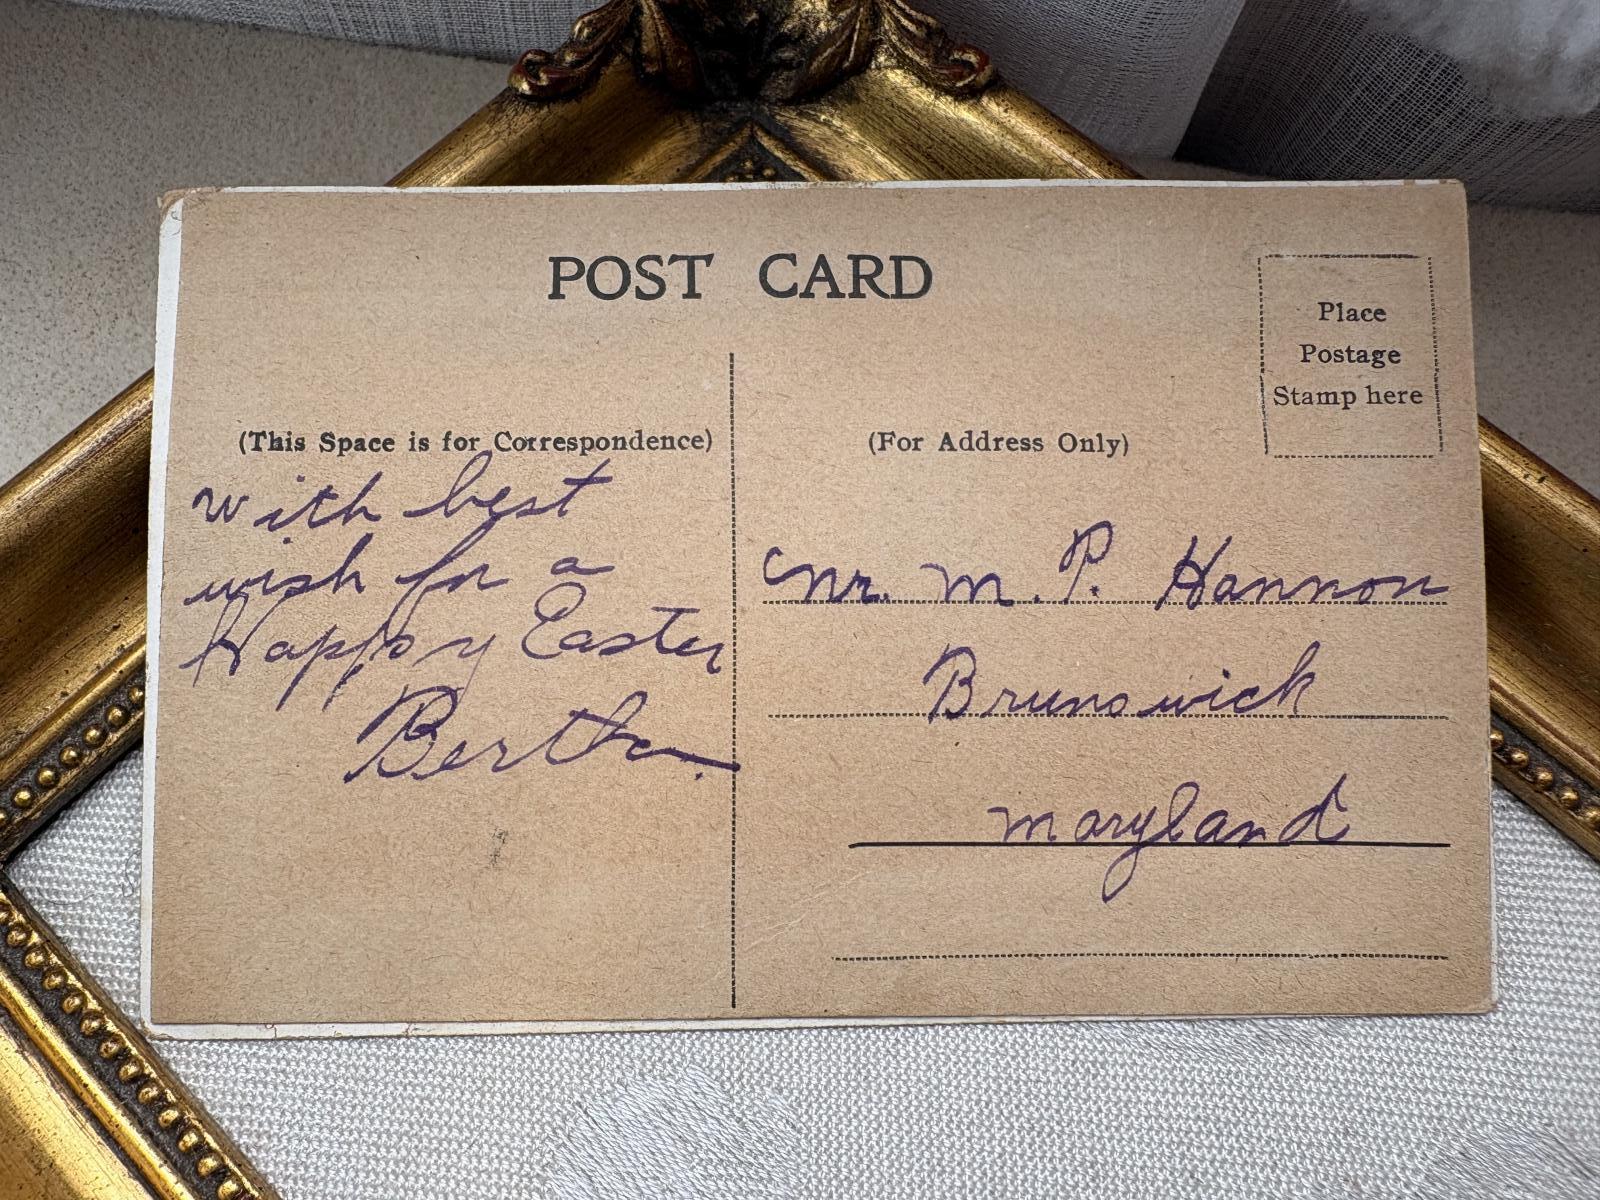 POST CARD
Place
Postage
Stamp here
(This Space is for Correspondence)
with best
wish for a
Happy Easter
Bertha.
(For Address Only)
Mr. M. P. Hannon
Brunswick
Maryland